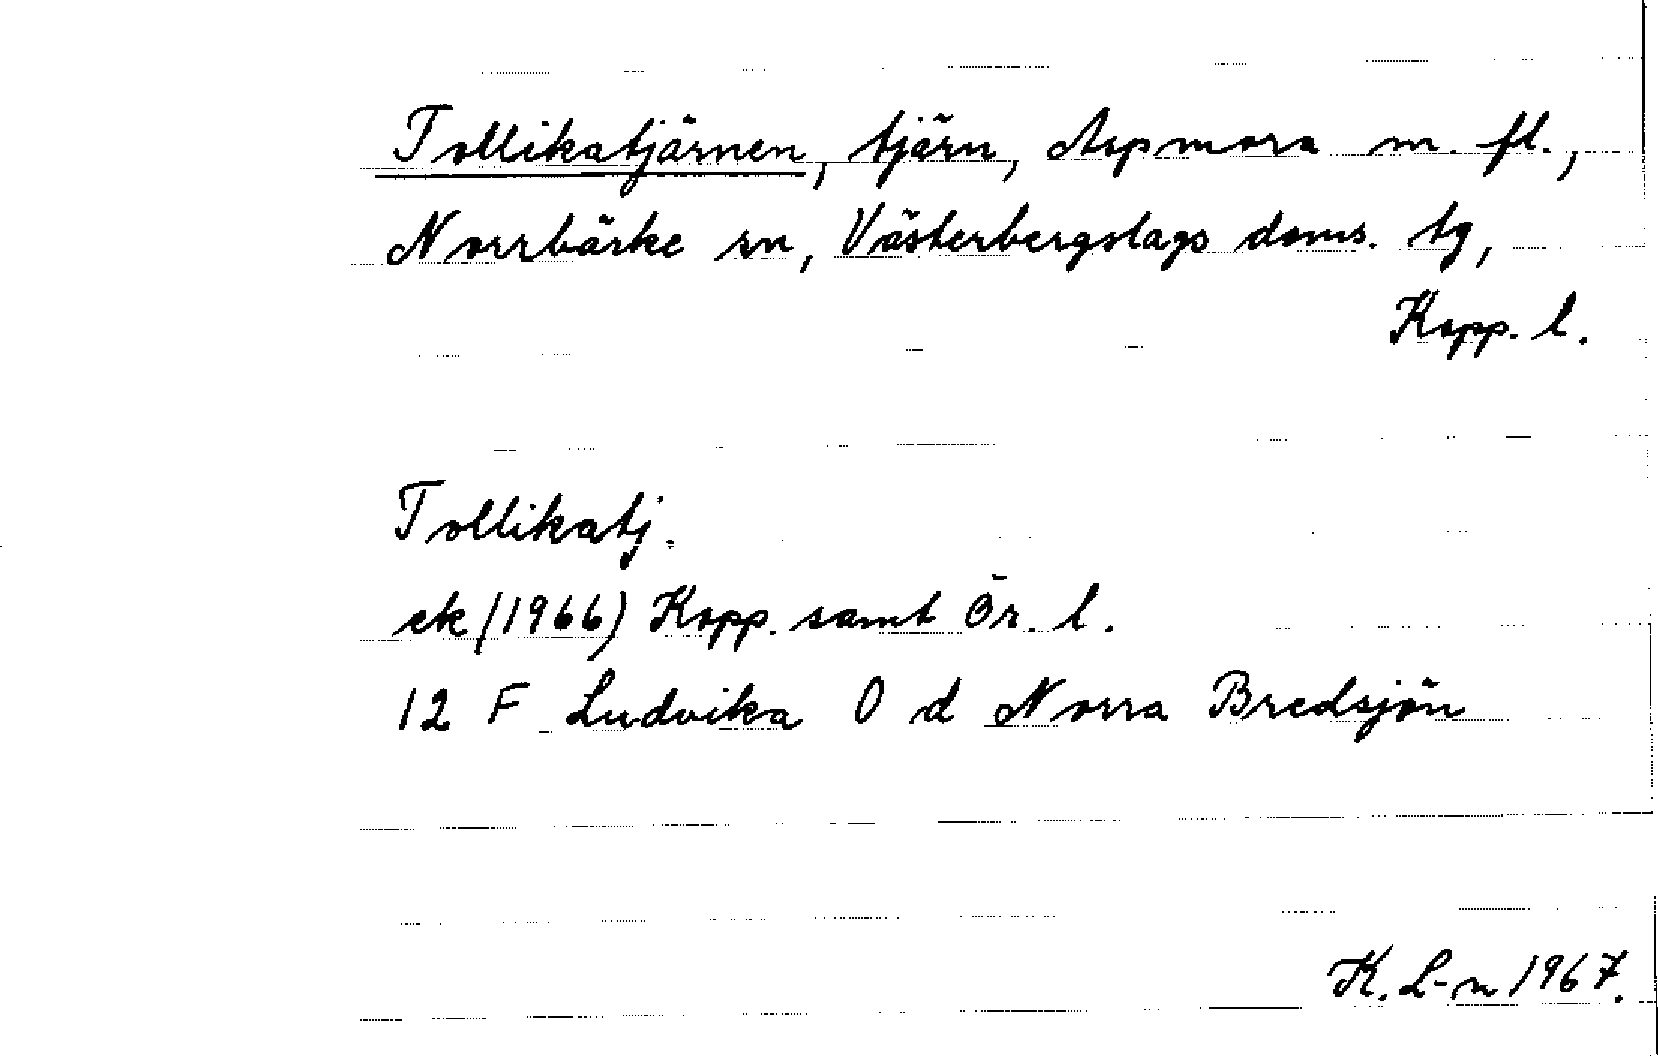 Tollikatjärnen, tjärn, Aspmora m. fl.,
Norrbärke sn, Västerbergslags doms. tg,
Kopp. l.
Tollikatj.
ek (1966) Kopp. samt Ör. l.
12 F Ludvika 0 d Norra Bredsjön
K. L-n 1967.